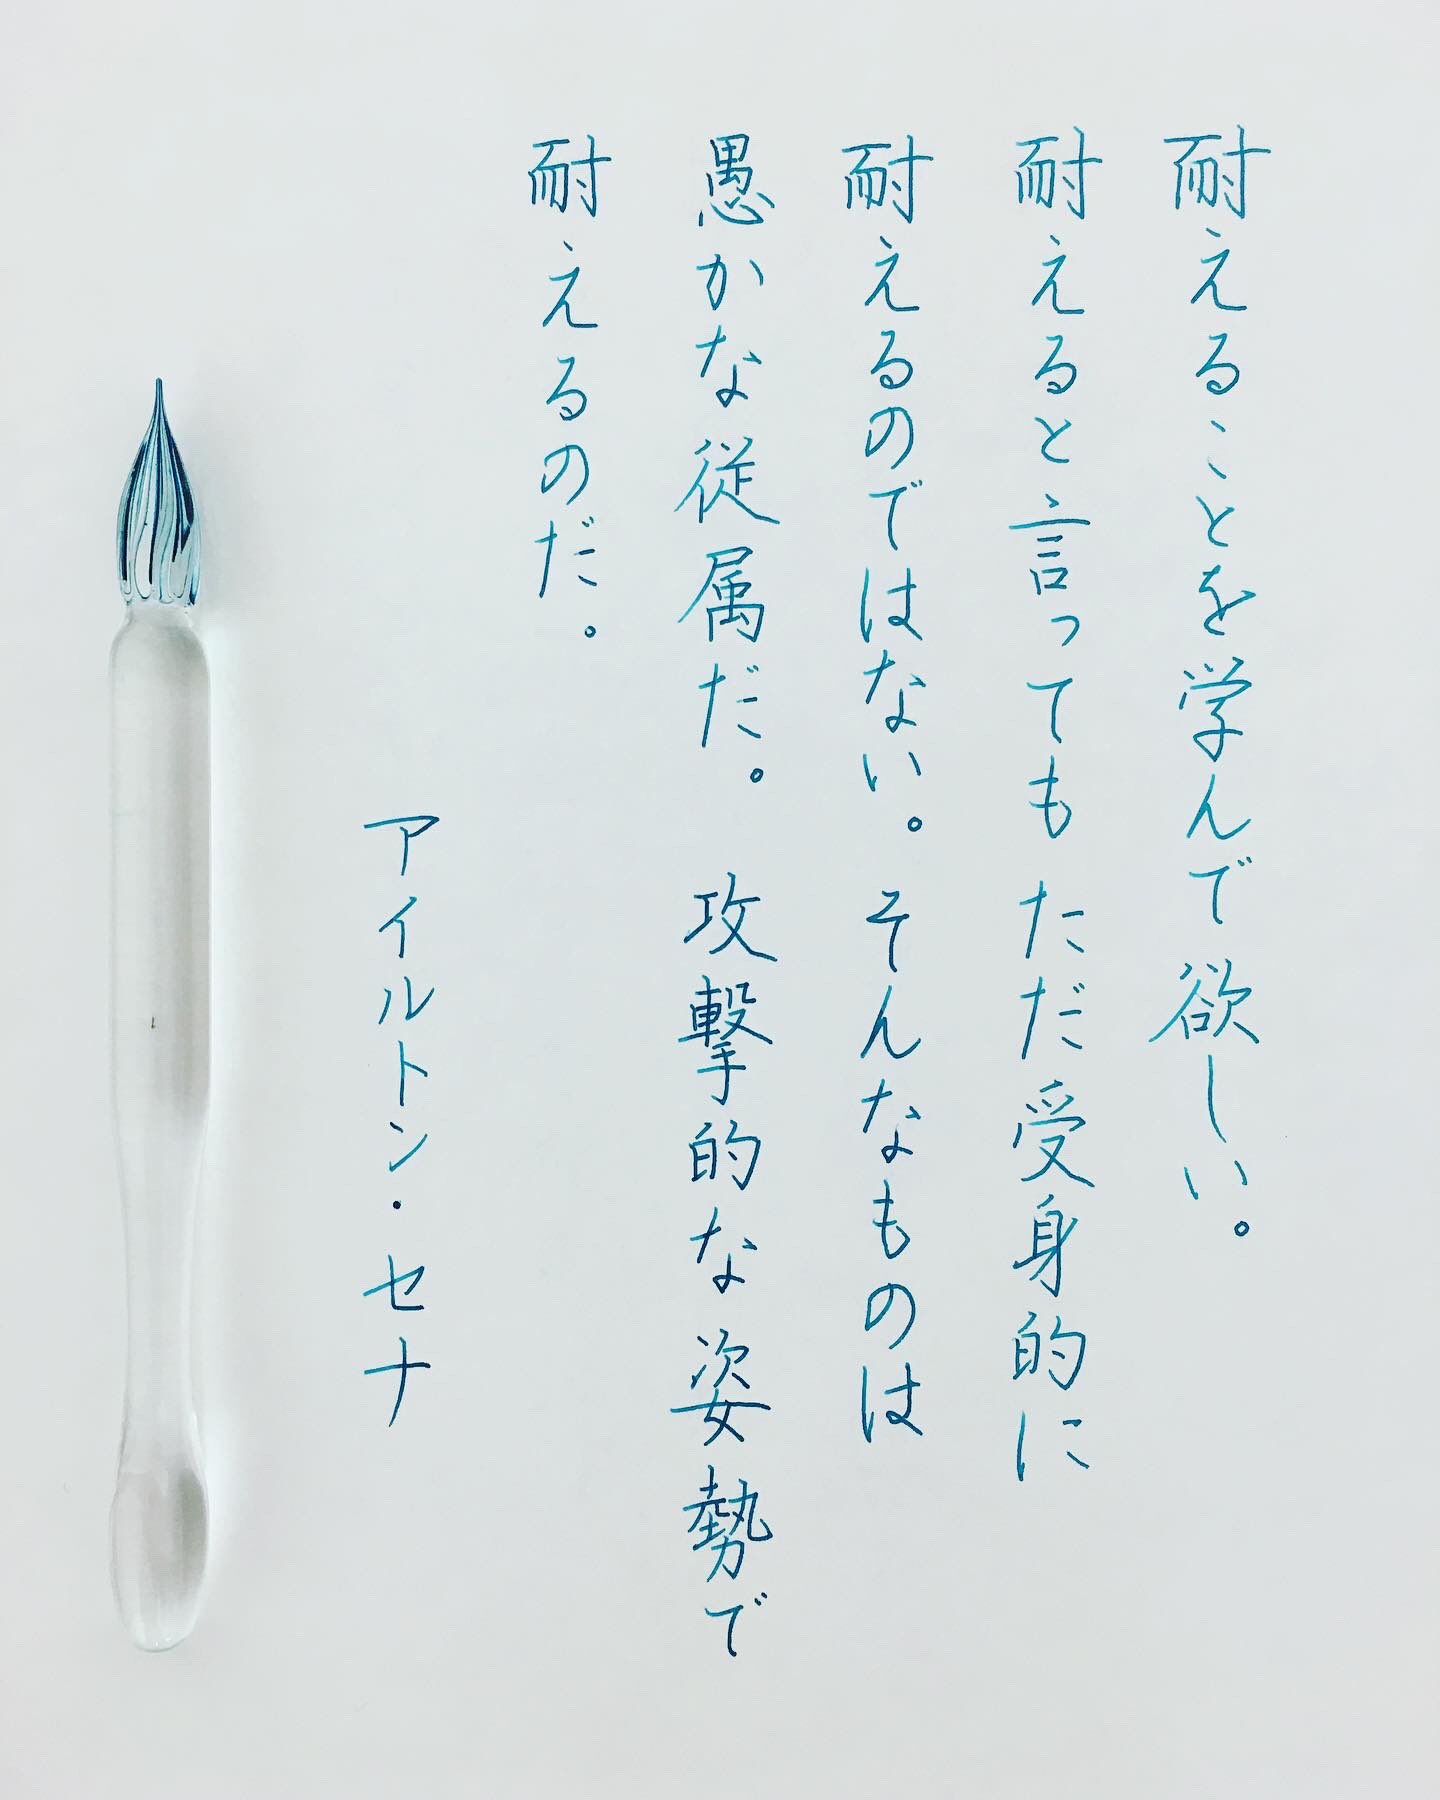 耐えることを学んで欲しい。
耐えると言っても ただ受身的に
耐えるのではない。そんなものは
愚かな従属だ。 攻撃的な姿勢で
耐えるのだ。
アイルトン・セナ